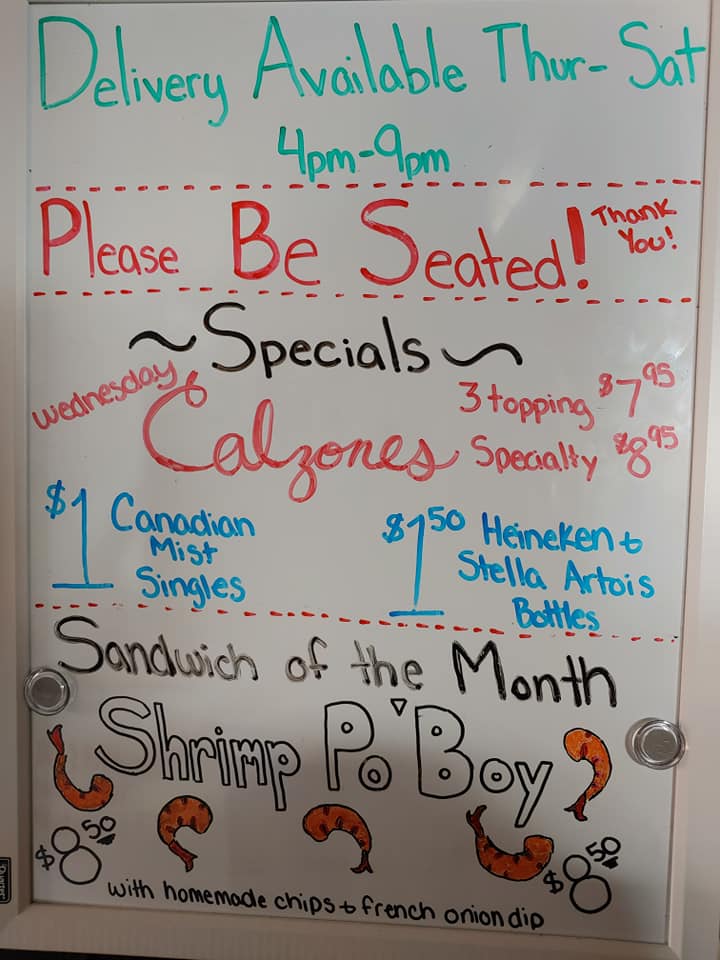 Delivery Available Thur-Sat
4pm-9pm
Please Be Seated! Thank You!
~Specials~
Wednesday Calzones
3 topping $7.95
Specialty $8.95
$1 Canadian
Mist
Singles
$1.50 Heineken +
Stella Artois
Bottles
Sandwich of the Month
Shrimp Po'Boy
$8.50
$8.50
with homemade chips + french onion dip
Quartet